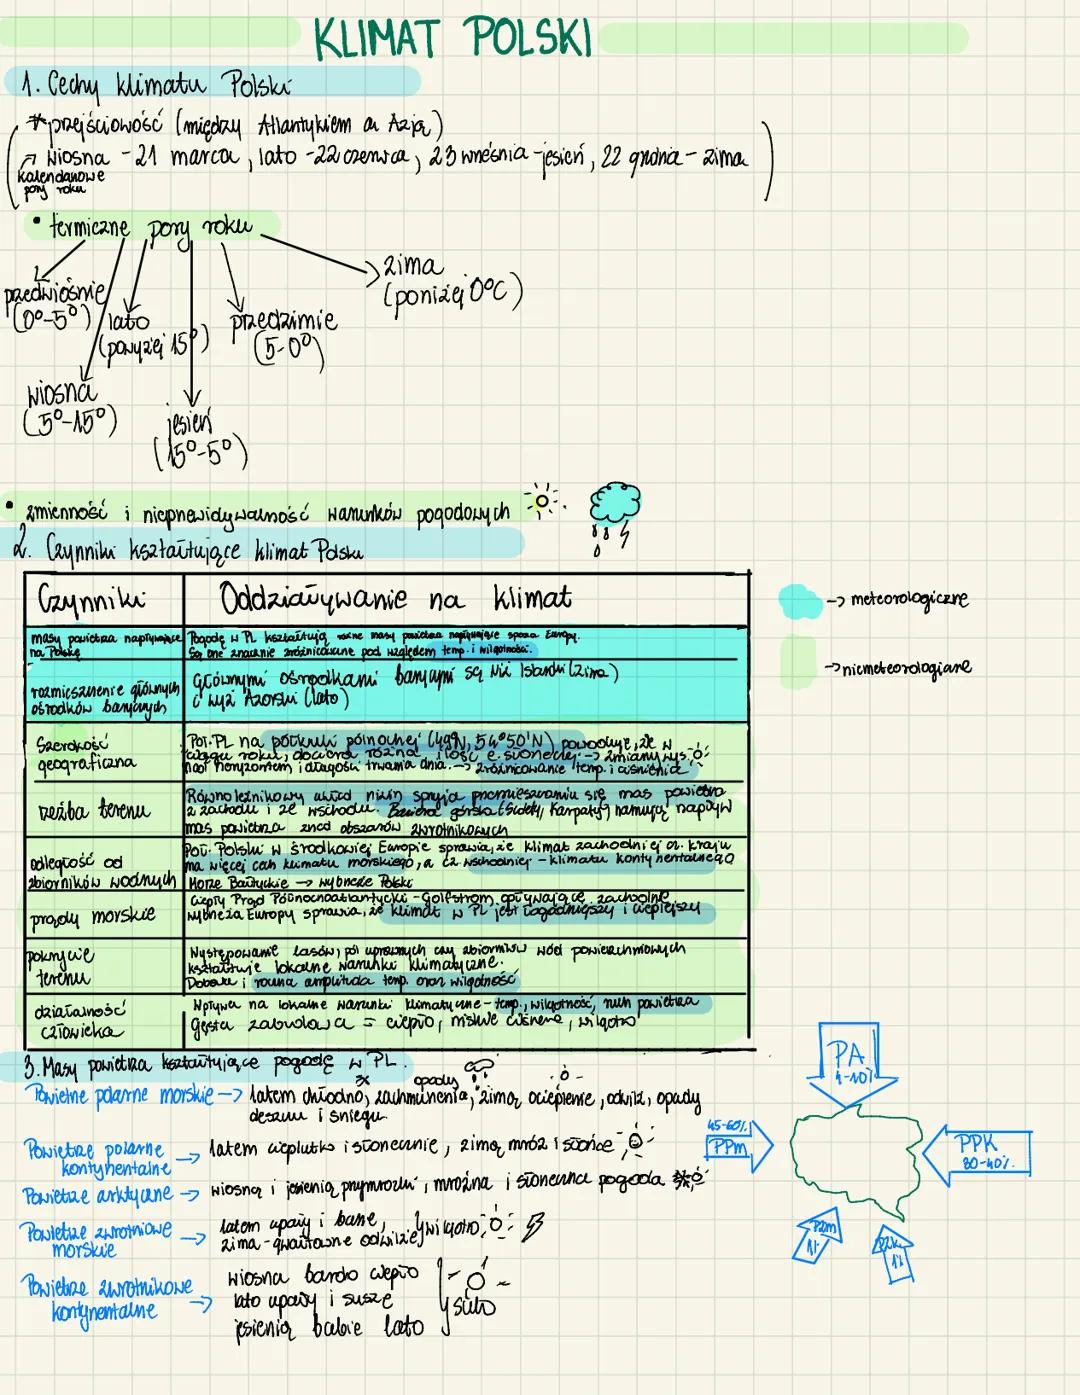 KLIMAT POLSKI
1. Cechy klimatu Polski
* przejściowość (między Atlantykiem a Azją)
→ wiosna - 21 marca, lato - 22 czerwca, 23 wneśnia - jesień, 22 grudnia - zima
kalendarzowe
pory roku
• termiczne pory roku
zima
(poniżej 0°C)
przedwiośnie
(0°-5°)
lato
(powyżej 15°)
przedzimie
(5-0°)
wiosna
(5°-15°)
jesień
(15°-5°)
• zmienność i nieprzewidywalność warunków pogodowych
2. Czynniki kształtujące klimat Polski
Czynniki
Oddziaływanie na klimat
masy powietrza napływające
na Polskę
Pogodę w PL kształtują różne masy powietrza napływające spoza Europy.
Są one znacznie zróżnicowane pod względem temp. i wilgotności.
rozmieszczenie głównych
ośrodków barycznych
Głównymi ośrodkami barycznymi są Niż Islandzki (zima)
i Wyż Azorski (lato)
→ meteorologiczne
→ niemeteorologiczne
Szerokość
geograficzna
Poł. PL na półkuli północnej (49°N, 54°50'N) powoduje, że w
ciągu roku, dociera różna ilość e. słonecznej. → zmiany wys.
nad horyzontem i długości trwania dnia. → zróżnicowanie temp. i ciśnienia
rzeźba terenu
Równoleżnikowy układ nizin sprzyja przemieszczaniu się mas powietrza
z zachodu i ze wschodu. Bariera górska (Sudety, Karpaty) hamują napływ
mas powietrza znad obszarów zwrotnikowych
odległość od
zbiorników wodnych
Poł. Polski w środkowiej Europie sprawia, że klimat zachodniej cz. kraju
ma więcej cech klimatu morskiego, a cz. wschodniej - klimatu kontynentalnego
Morze Bałtyckie → wybrzeże Polski
prądy morskie
Ciepły Prąd Północnoatlantycki - Golfsztrom opływające zachodnie
wybrzeża Europy sprawia, że klimat w PL jest łagodniejszy i cieplejszy
pokrycie
terenu
Występowanie lasów, pól uprawnych czy zbiorników wód powierzchniowych
kształtuje lokalne warunki klimatyczne.
Dobowe i roczna amplituda temp. oraz wilgotność
działalność
człowieka
Wpływa na lokalne warunki klimatyczne - temp., wilgotność, ruch powietrza
gęsta zabudowa = ciepło, niskie ciśnienie, wilgotno
3. Masy powietrza kształtujące pogodę w PL.
Powietrze polarne morskie → latem chłodno, zachmurzenia, opady, zimą ocieplenie, odwilż, opady
deszczu i śniegu.
Powietrze polarne
kontynentalne → latem cieplutko i słonecznie, zimą mróz i słońce
Powietrze arktyczne → wiosną i jesienią przymrozki, mroźna i słoneczna pogoda
Powietrze zwrotniowe
morskie → latem upały i burze,
zima - gwałtowne odwilże } wilgotno
Powietrze zwrotnikowe
kontynentalne →
wiosna bardzo ciepło
lato upały i susze
jesienią babie lato
} sucho
PA
4-10%
45-60%
PPm
PPK
30-40%
PZm
1%
PZk
1%